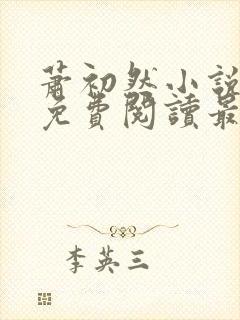 蕭初然小說
免費閱讀最
李英三